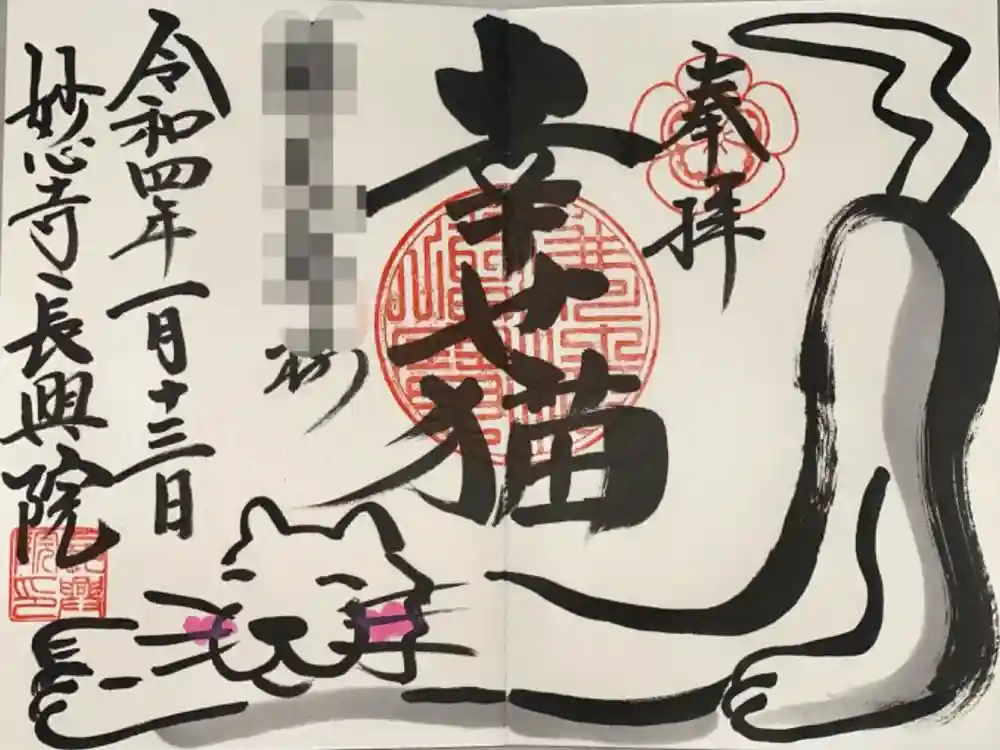 奉拝
幸せ猫
令和四年一月十三日
妙心寺長興院